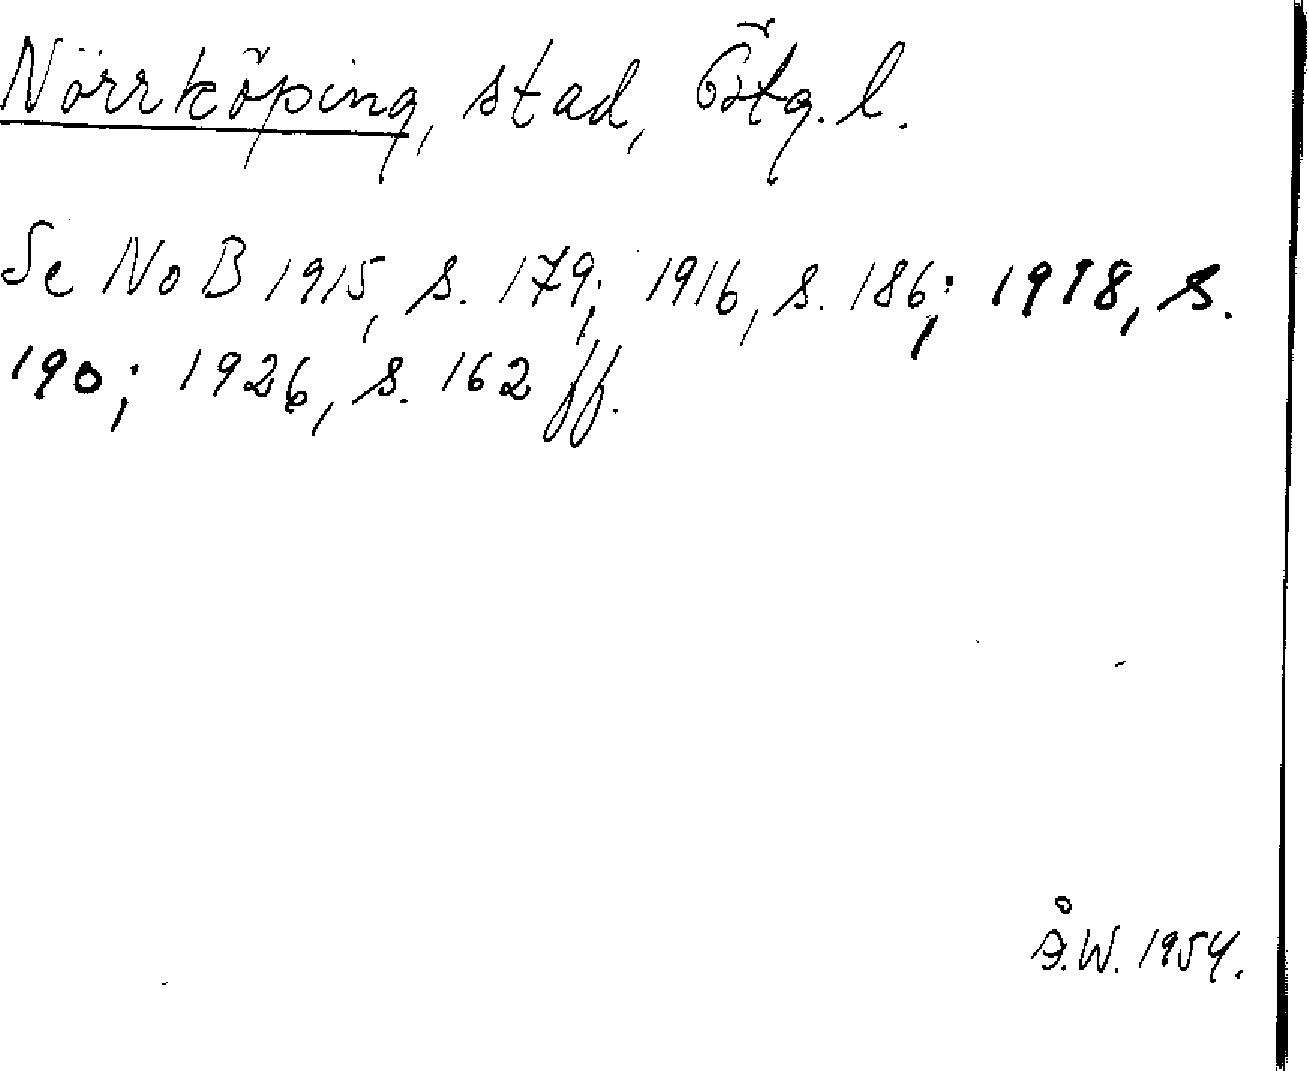 Norrköping, stad, Östg. l.
Se NoB 1915, s. 179; 1916, s. 186; 1918, s.
190; 1926, s. 162 ff.
Å.W. 1954.